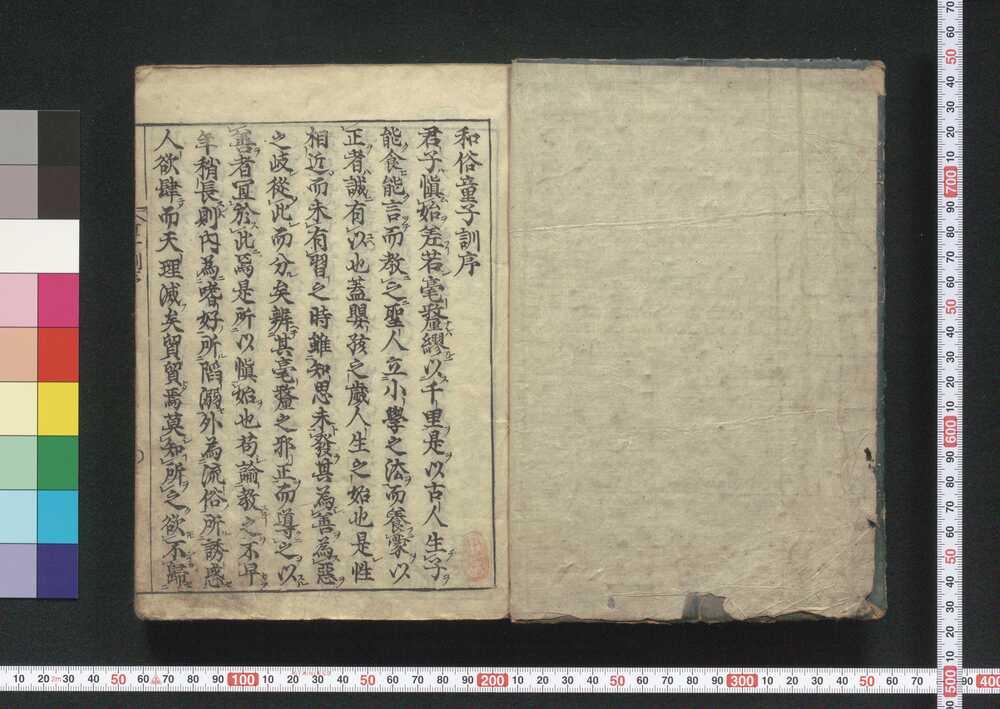 和俗童子訓序
君子愼始差若毫釐繆以千里是以古人生子
能食能言而敎之聖人立小學之法而養蒙以
正者誠有以也蓋嬰孩之歳人生之始也是性
相近而未有習之時雖知思未發其為善為惡
之岐從此而分矣辨其毫釐之邪正而導之以
善者宜於此焉是所以愼始也苟論教之不早
年稍長則內為嗜好所陷溺外為流俗所誘惑
人欲肆而天理滅矣貿貿焉莫知所之欲不歸